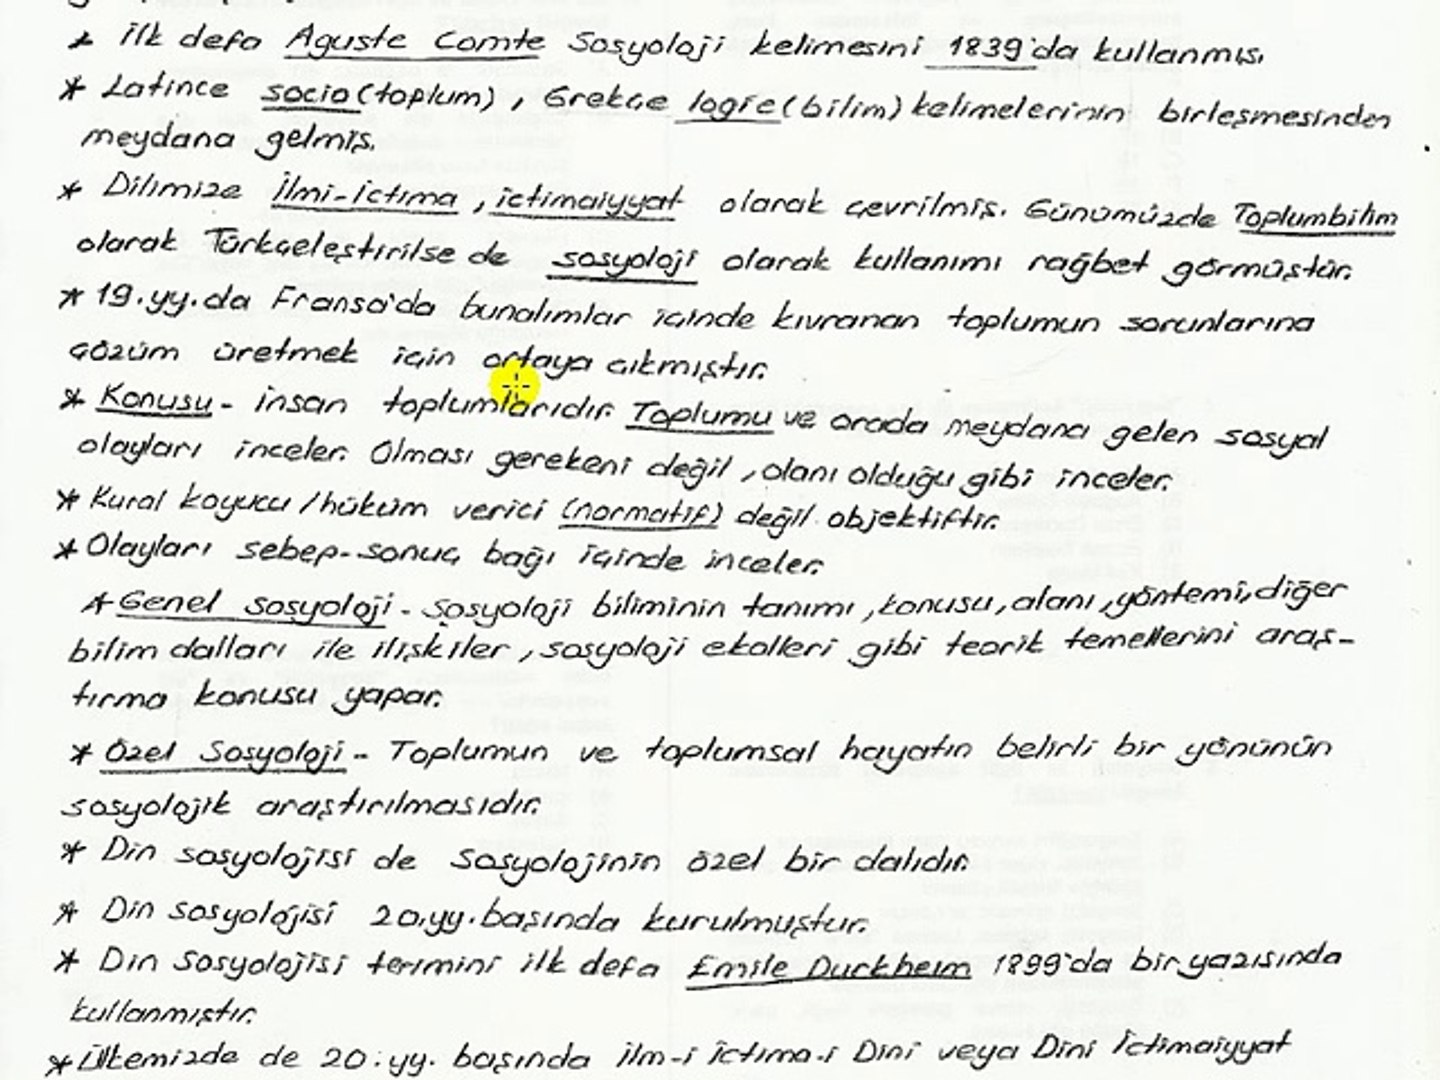 * İlk defa Aguste Comte Sosyoloji kelimesini 1839'da kullanmış.
* Latince socio (toplum), Grekçe logie (bilim) kelimelerinin birleşmesinden
meydana gelmiş.
* Dilimize İlmi-İctima, ictimaiyyat olarak çevrilmiş. Günümüzde Toplumbilim
olarak Türkçeleştirilse de sosyoloji olarak kullanımı rağbet görmüştür.
* 19.yy.da Fransa'da bunalımlar içinde kıvranan toplumun sorunlarına
çözüm üretmek için ortaya çıkmıştır.
* Konusu - insan toplumlarıdır. Toplumu ve orada meydana gelen sosyal
olayları inceler. Olması gerekeni değil, olanı olduğu gibi inceler.
* Kural koyucu / hüküm verici (normatif) değil objektiftir.
* Olayları sebep-sonuç bağı içinde inceler.
* Genel sosyoloji - Sosyoloji biliminin tanımı, konusu, alanı, yöntemi, diğer
bilim dalları ile ilişkiler, sosyoloji ekolleri gibi teorik temellerini araş-
tırma konusu yapar.
* Özel Sosyoloji - Toplumun ve toplumsal hayatın belirli bir yönünün
sosyolojik araştırılmasıdır.
* Din sosyolojisi de sosyolojinin özel bir dalıdır.
* Din sosyolojisi 20.yy. başında kurulmuştur.
* Din sosyolojisi terimini ilk defa Emile Durkheim 1899'da bir yazısında
kullanmıştır.
* Ülkemizde de 20.yy. başında ilm-i İctima-i Dini veya Dini İctimaiyyat